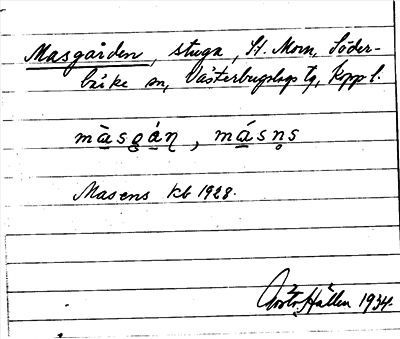 Masgården, stuga, St. Morn, Söder-
bärke sn, Västerbergslags tg, Kopp l.
màsgán, másns
Masens kb 1928.
Gösta Hållen 1934